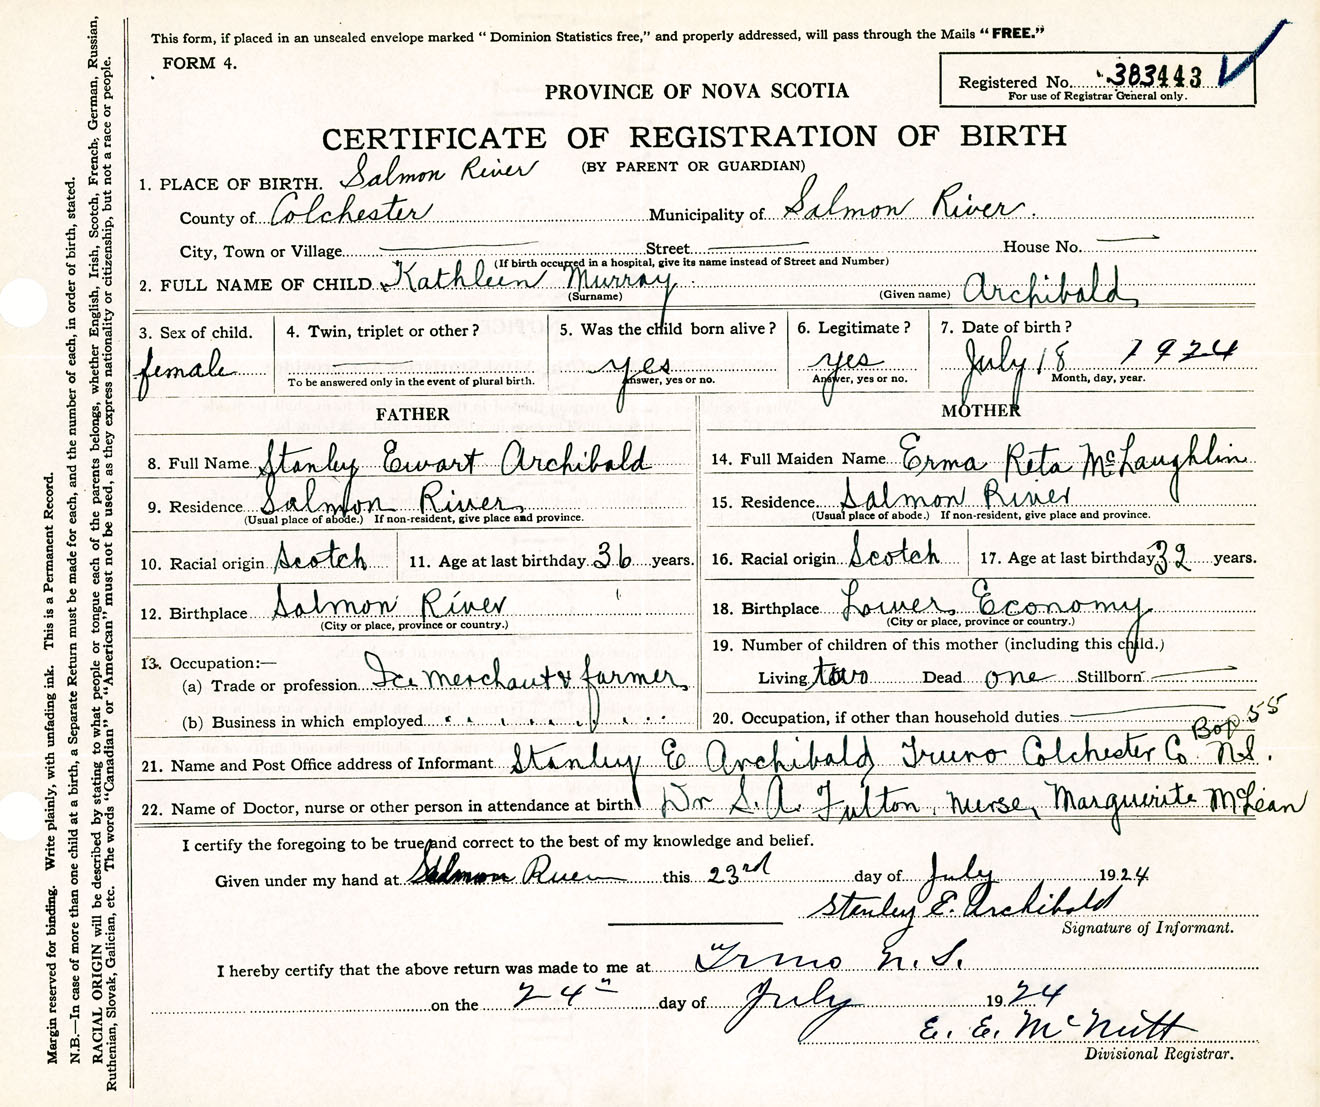 This form, if placed in an unsealed envelope marked “ Dominion Statistics free,” and properly addressed, will pass through the Mails “ FREE.”
FORM 4.
Registered No. 383443
For use of Registrar General only.
PROVINCE OF NOVA SCOTIA
CERTIFICATE OF REGISTRATION OF BIRTH
(BY PARENT OR GUARDIAN)
1. PLACE OF BIRTH. Salmon River
County of Colchester Municipality of Salmon River.
City, Town or Village Street House No.
(If birth occurred in a hospital, give its name instead of Street and Number)
2. FULL NAME OF CHILD Kathleen Murray Archibald
(Surname) (Given name)
3. Sex of child. 4. Twin, triplet or other? 5. Was the child born alive? 6. Legitimate? 7. Date of birth?
female yes yes July 18 1924
To be answered only in the event of plural birth. Answer, yes or no. Answer, yes or no. Month, day, year.
FATHER
8. Full Name Stanley Ewart Archibald
9. Residence Salmon River
(Usual place of abode.) If non-resident, give place and province.
10. Racial origin Scotch 11. Age at last birthday 36 years.
12. Birthplace Salmon River
(City or place, province or country.)
13. Occupation:—
(a) Trade or profession Ice merchant & farmer
(b) Business in which employed " " " "
MOTHER
14. Full Maiden Name Erma Reta McLaughlin
15. Residence Salmon River
(Usual place of abode.) If non-resident, give place and province.
16. Racial origin Scotch 17. Age at last birthday 32 years.
18. Birthplace Lower Economy
(City or place, province or country.)
19. Number of children of this mother (including this child.)
Living two Dead one Stillborn
20. Occupation, if other than household duties
Box 55
21. Name and Post Office address of Informant Stanley E Archibald Truro Colchester Co. N.S.
22. Name of Doctor, nurse or other person in attendance at birth Dr S. A. Fulton, nurse, Marguerite McLean
I certify the foregoing to be true and correct to the best of my knowledge and belief.
Given under my hand at Salmon River this 23rd day of July 1924
Stanley E. Archibald
Signature of Informant.
I hereby certify that the above return was made to me at Truro N. S.
on the 24th day of July 1924
E. E. McNutt
Divisional Registrar.
Margin reserved for binding. Write plainly, with unfading ink. This is a Permanent Record.
N.B.—In case of more than one child at a birth, a Separate Return must be made for each, and the number of each, in order of birth, stated.
RACIAL ORIGIN will be described by stating to what people or tongue each of the parents belongs, whether English, Irish, Scotch, French, German, Russian,
Ruthenian, Slovak, Galician, etc. The words “Canadian” or “American” must not be used, as they express nationality or citizenship, but not a race or people.